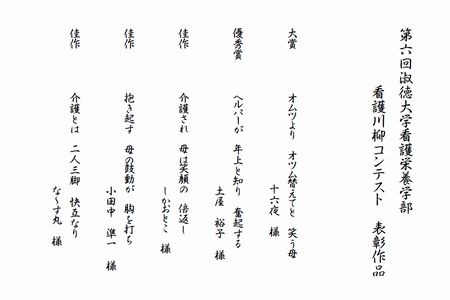 第六回淑徳大学看護栄養学部
看護川柳コンテスト　表彰作品
大賞　オムツより　オツム替えてと　笑う母
十六夜　様
優秀賞　ヘルパーが　年上と知り　奮起する
土屋　裕子　様
佳作　介護され　母は笑顔の　倍返し
しかおとこ　様
佳作　抱き起す　母の鼓動が　胸を打ち
小田中　準一　様
佳作　介護とは　二人三脚　快互なり
な～す丸　様